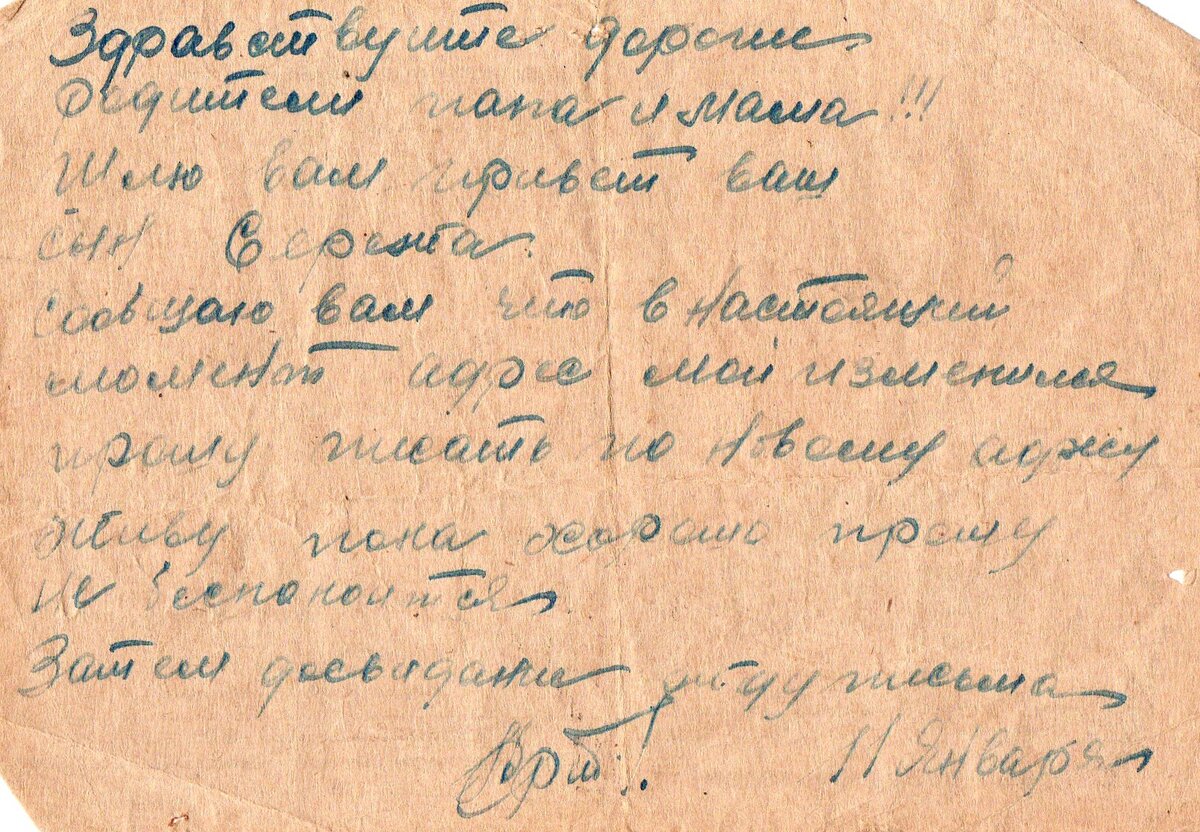 Здравствуйте дороги
родители папа и мама!!!
Шлю вам привет ваш
сын Сережа.
сообщаю вам что в настоящий
момент адрес мой изменился
прошу писать по новому адресу
живу пока хорошо прошу
не беспокоится.
Затем досвидани жду письма
11 Января